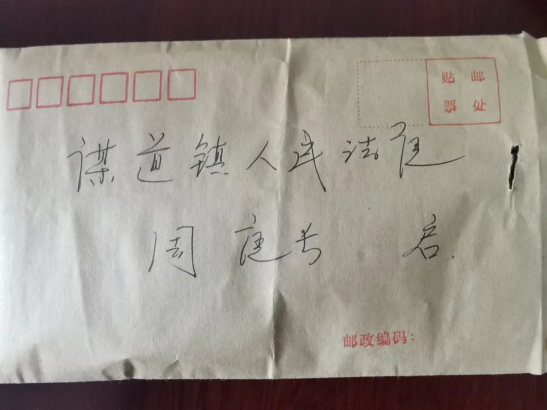 贴邮
票处
谋道镇人民法庭
周庭长 启.
邮政编码：